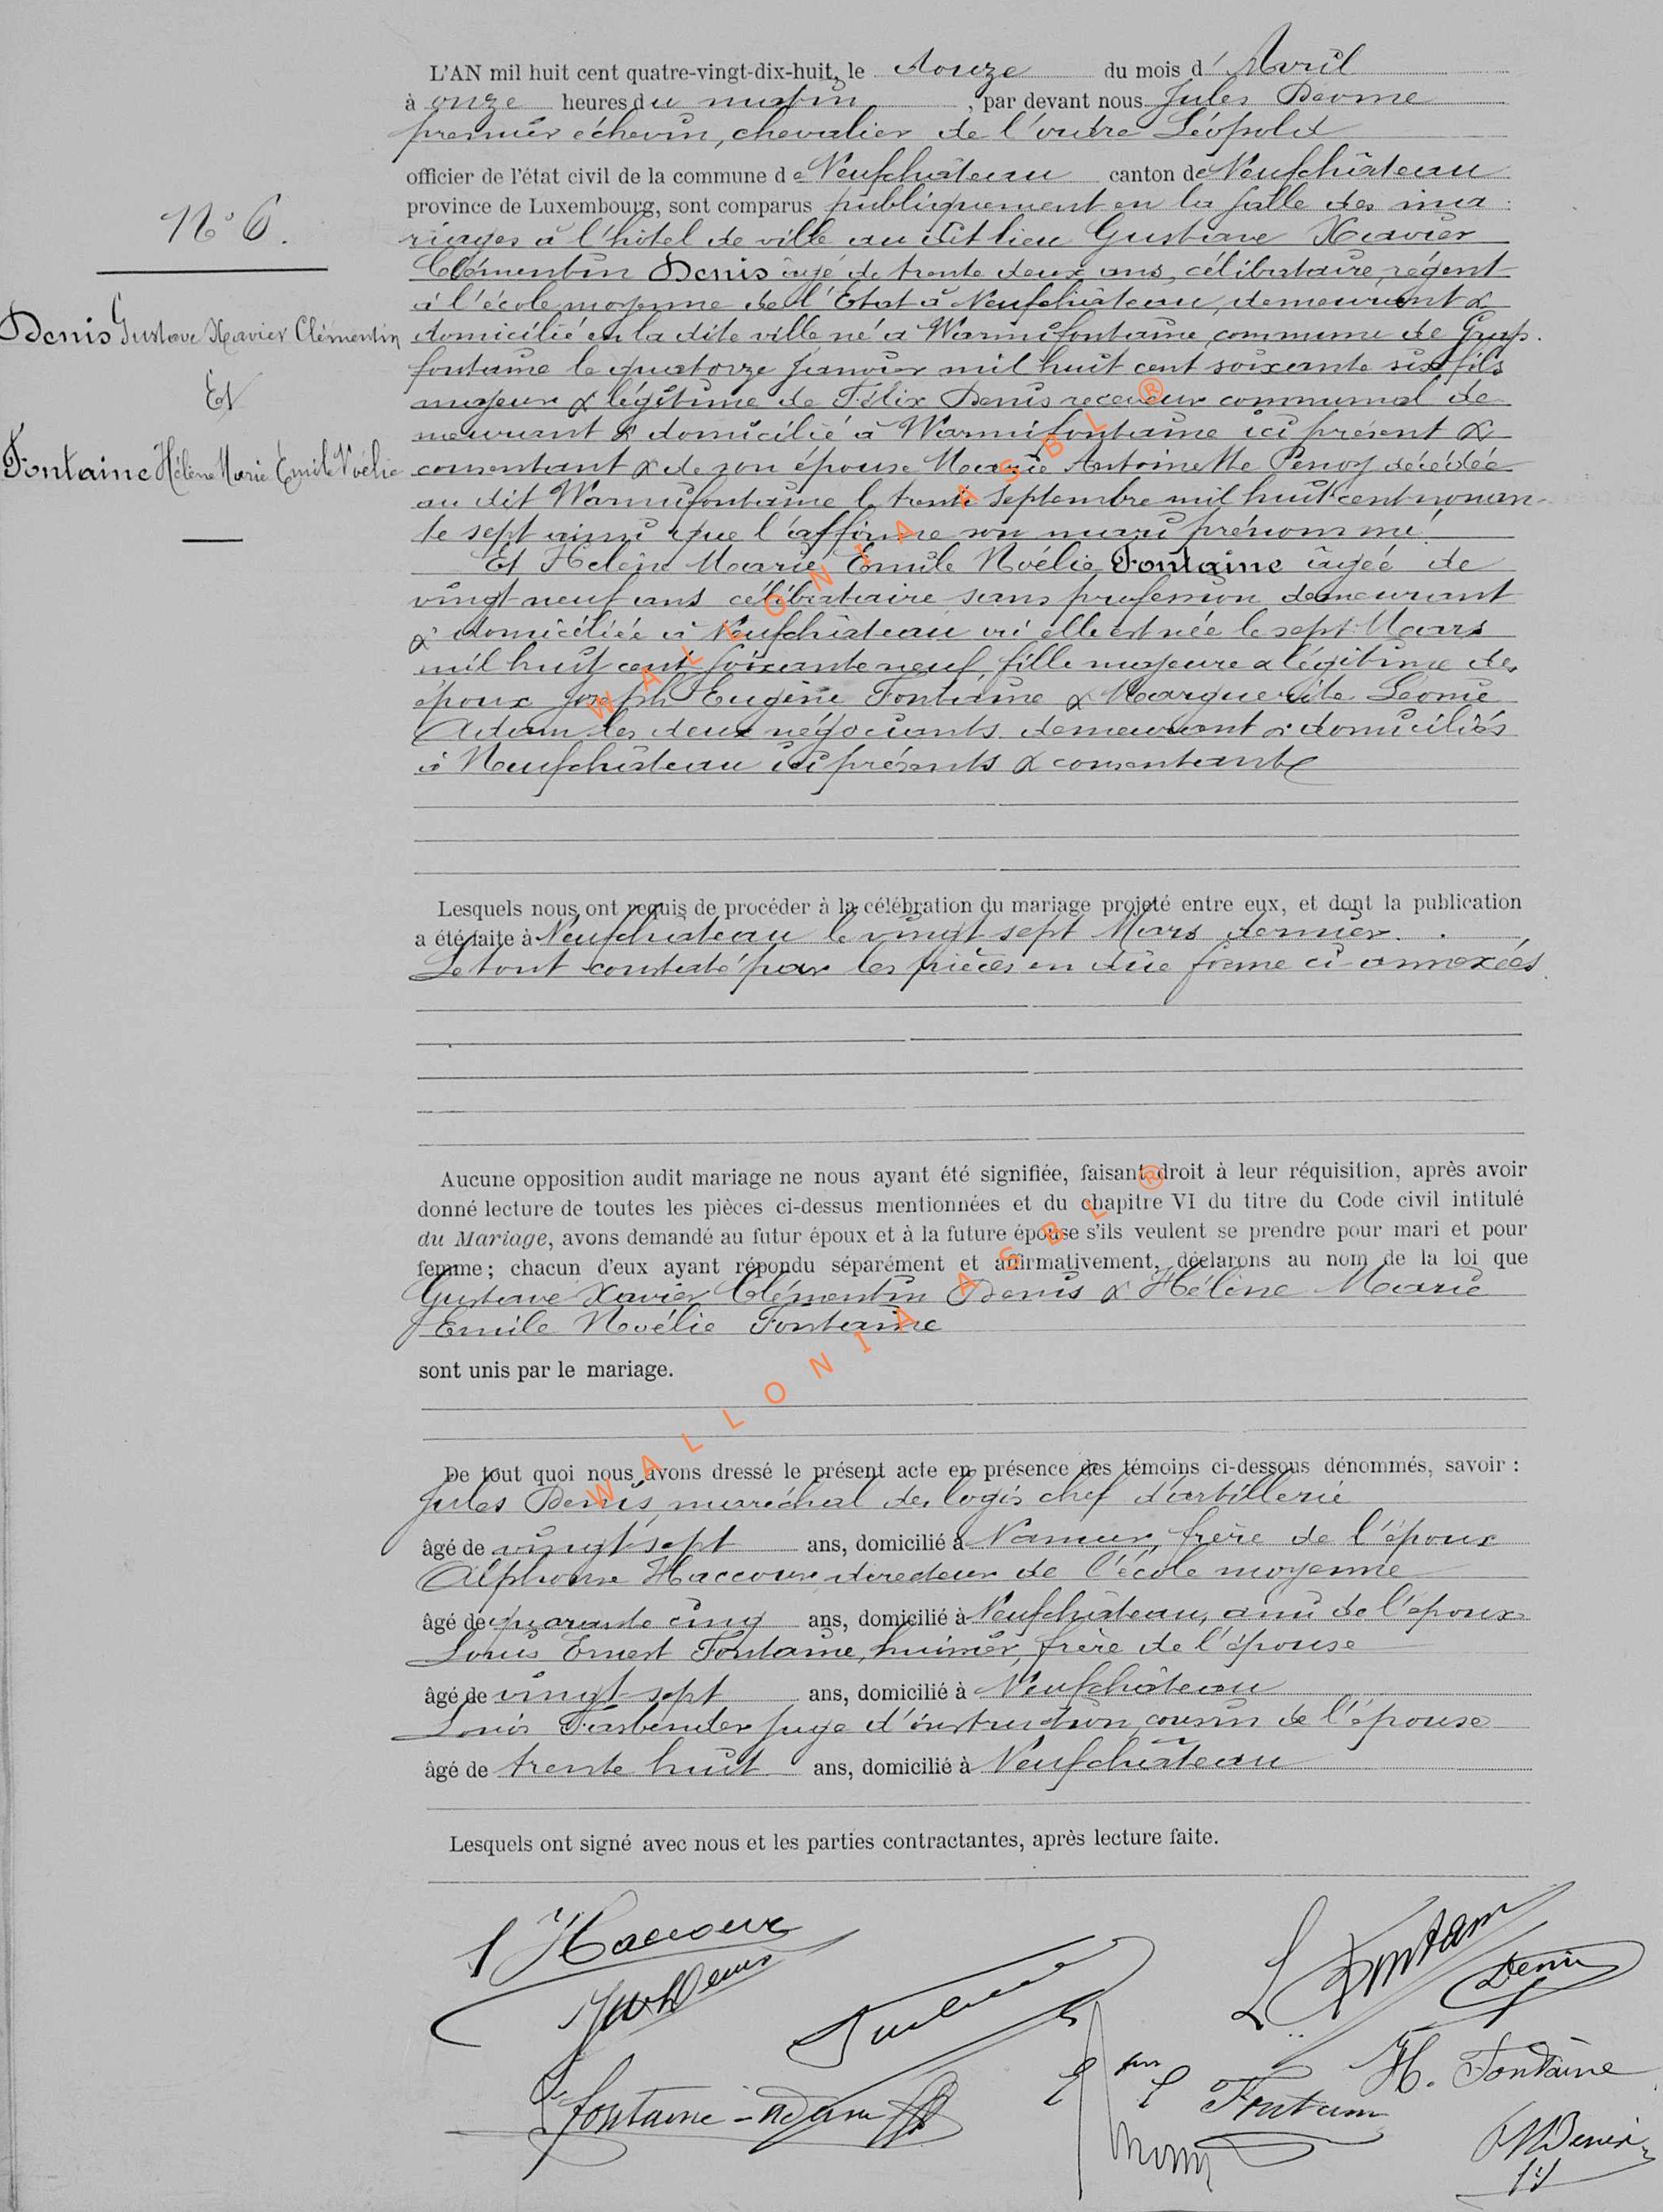 L'AN mil huit cent quatre-vingt-dix-huit, le douze du mois d' Avril
à onze heures du matin, par devant nous Jules
premier échevin, chevalier de l'ordre Léopold
officier de l'état civil de la commune de Neufchâteau canton de Neufchâteau
province de Luxembourg, sont comparus publiquement en la salle des ma
N° 6.
riages à l'hôtel de ville au dit lieu Gustave Xavier
Clémentin Denis âgé de trente deux ans, célibataire, régent
à l'école moyenne de l'Etat à Neufchâteau, demeurant &
Denis Gustave Xavier Clémentin
domicilié en la dite ville né à Warmifontaine commune de Grap.
fontaine le quatorze janvier mil huit cent soixante six fils
Et
majeur & légitime de Félix Denis receveur communal de
meurant & domicilié à Warmifontaine ici présent &
Fontaine Hélène Marie Emile Noélie
consentant & de son épouse Marie Antoinette décédée
au dit Warmifontaine le trente septembre mil huit cent nonan-
te sept ainsi que l'affirme son mari prénommé.
Et Hélène Marie Emile Noélie Fontaine âgée de
vingt neuf ans célibataire sans profession demeurant
& domiciliée à Neufchâteau où elle est née le sept Mars
mil huit cent soixante neuf, fille majeure & légitime des
époux Joseph Eugène Fontaine & Marguerite Léonie
Adam les deux négociants demeurant & domiciliés
à Neufchâteau ici présents & consentants
Lesquels nous ont requis de procéder à la célébration du mariage projeté entre eux, et dont la publication
a été faite à Neufchâteau le vingt sept Mars dernier.
Le tout constaté par les pièces en due forme ci-annexées.
Aucune opposition audit mariage ne nous ayant été signifiée, faisant droit à leur réquisition, après avoir
donné lecture de toutes les pièces ci-dessus mentionnées et du chapitre VI du titre du Code civil intitulé
du Mariage, avons demandé au futur époux et à la future épouse s'ils veulent se prendre pour mari et pour
femme; chacun d'eux ayant répondu séparément et affirmativement, déclarons au nom de la loi que
Gustave Xavier Clémentin Denis & Hélène Marie
Emile Noélie Fontaine
sont unis par le mariage.
De tout quoi nous avons dressé le présent acte en présence des témoins ci-dessous dénommés, savoir :
Jules Denis, maréchal des logis chef d'artillerie
âgé de vingt sept ans, domicilié à Namur, frère de l'époux
Alphonse Haccour directeur de l'école moyenne
âgé de quarante cinq ans, domicilié à Neufchâteau, ami de l'époux
Louis Ernest Fontaine, frère de l'épouse
âgé de vingt sept ans, domicilié à Neufchâteau
Louis juge d'instruction, cousin de l'épouse
âgé de trente huit ans, domicilié à Neufchâteau
Lesquels ont signé avec nous et les parties contractantes, après lecture faite.
Haccour
L Fontain
Denis
H. Fontaine
fontaine-adam
Denis
WALLONIA ASBL ®
WALLONIA ASBL ®